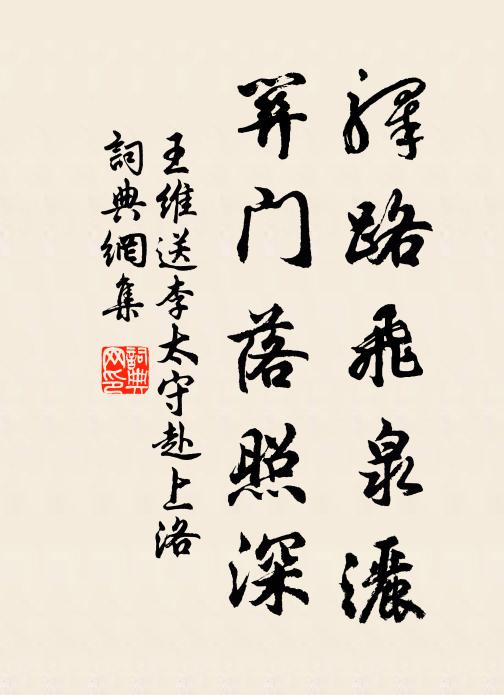 驛路飛泉灑
关门落照深
王維送李太守赴上洛
詞典網集
詞典网印